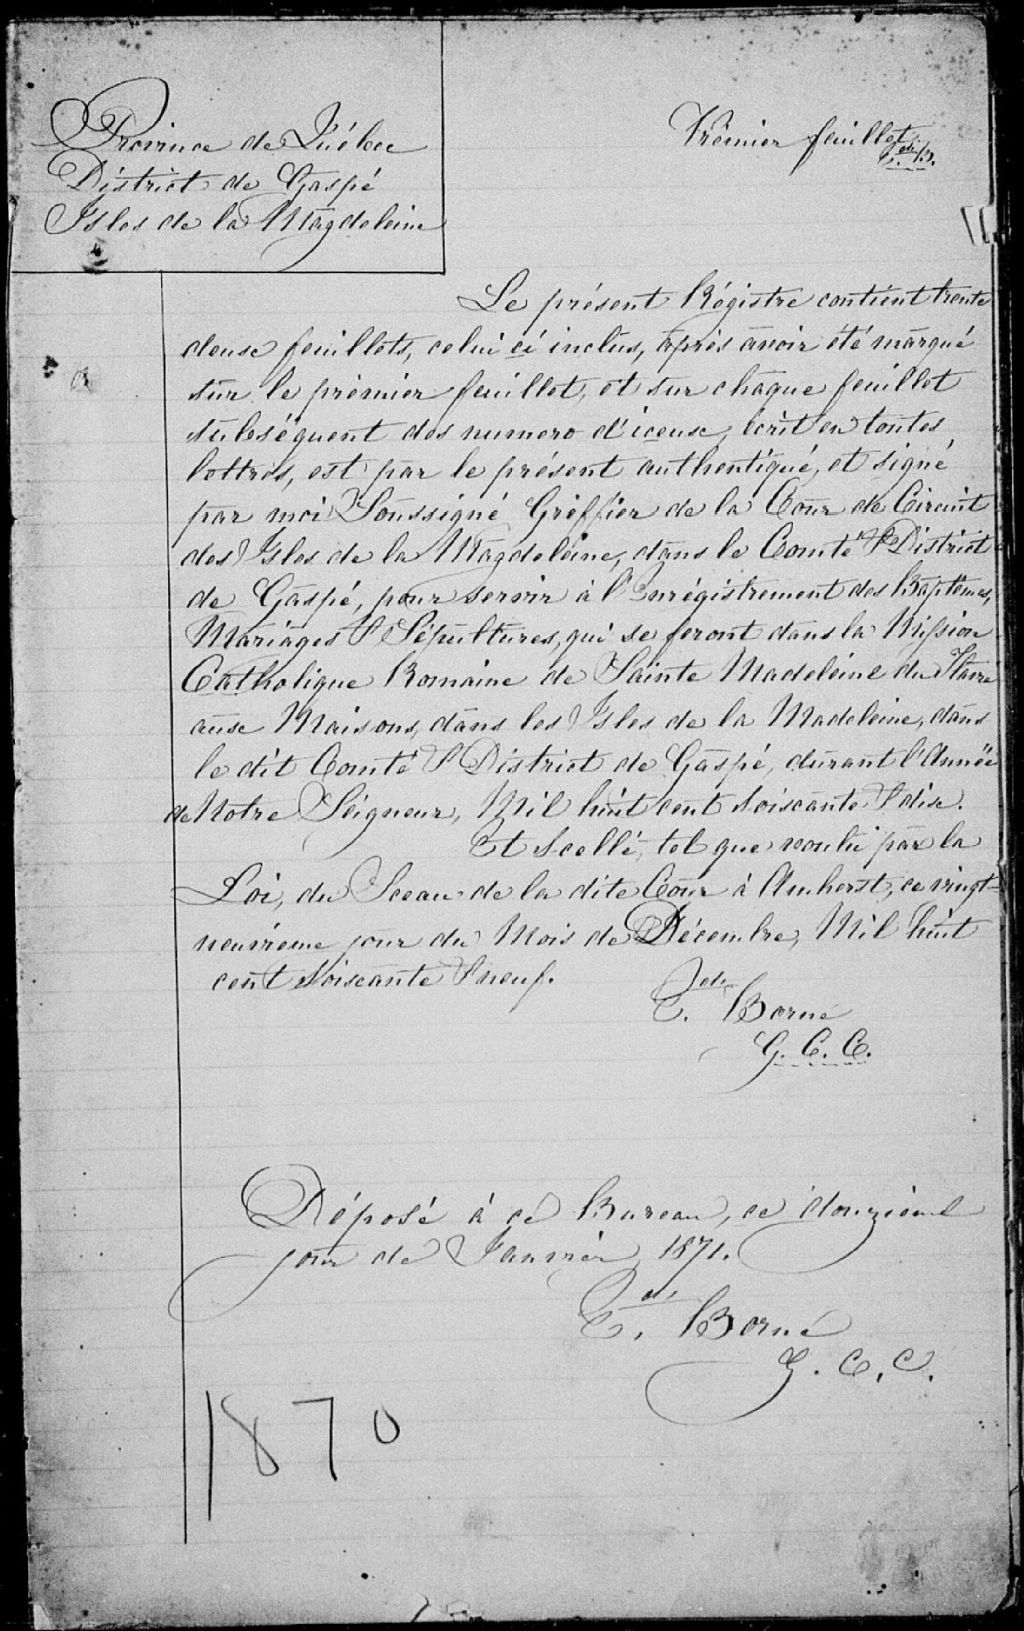 Province de Québec
District de Gaspé
Isles de la Magdeleine
Prémier feuillet
Le présent Régistre contient trente
deux feuillets, celui ci inclus, après avoir été marqué
sur le prémier feuillet, et sur chaque feuillet
subséquent des numero d'iceux, écrit en toutes
lettres, est par le présent authentiqué, et signé
par moi Soussigné Gréffier de la Cour de Circuit
des Isles de la Magdeleine, dans le Comté & District
de Gaspé, pour servir à l'Enrégistrement des Baptêmes,
Mariages & Sépultures, qui se feront dans la Mission
Catholique Romaine de Sainte Madeleine du Havre
aux Maisons, dans les Isles de la Madeleine, dans
le dit Comté & District de Gaspé, durant l'Année
de Notre Seigneur, Mil huit cent soixante & dix.
Et Scellé, tel que voulu par la
Loi, du Sceau de la dite Cour à Amherst, ce vingt
neuvième jour du Mois de Décembre, Mil huit
cent soixante & neuf.
Borné
G. C. C.
Déposé à ce Bureau, ce douzième
jour de Janvier 1871.
Borné
G. C. C.
1870